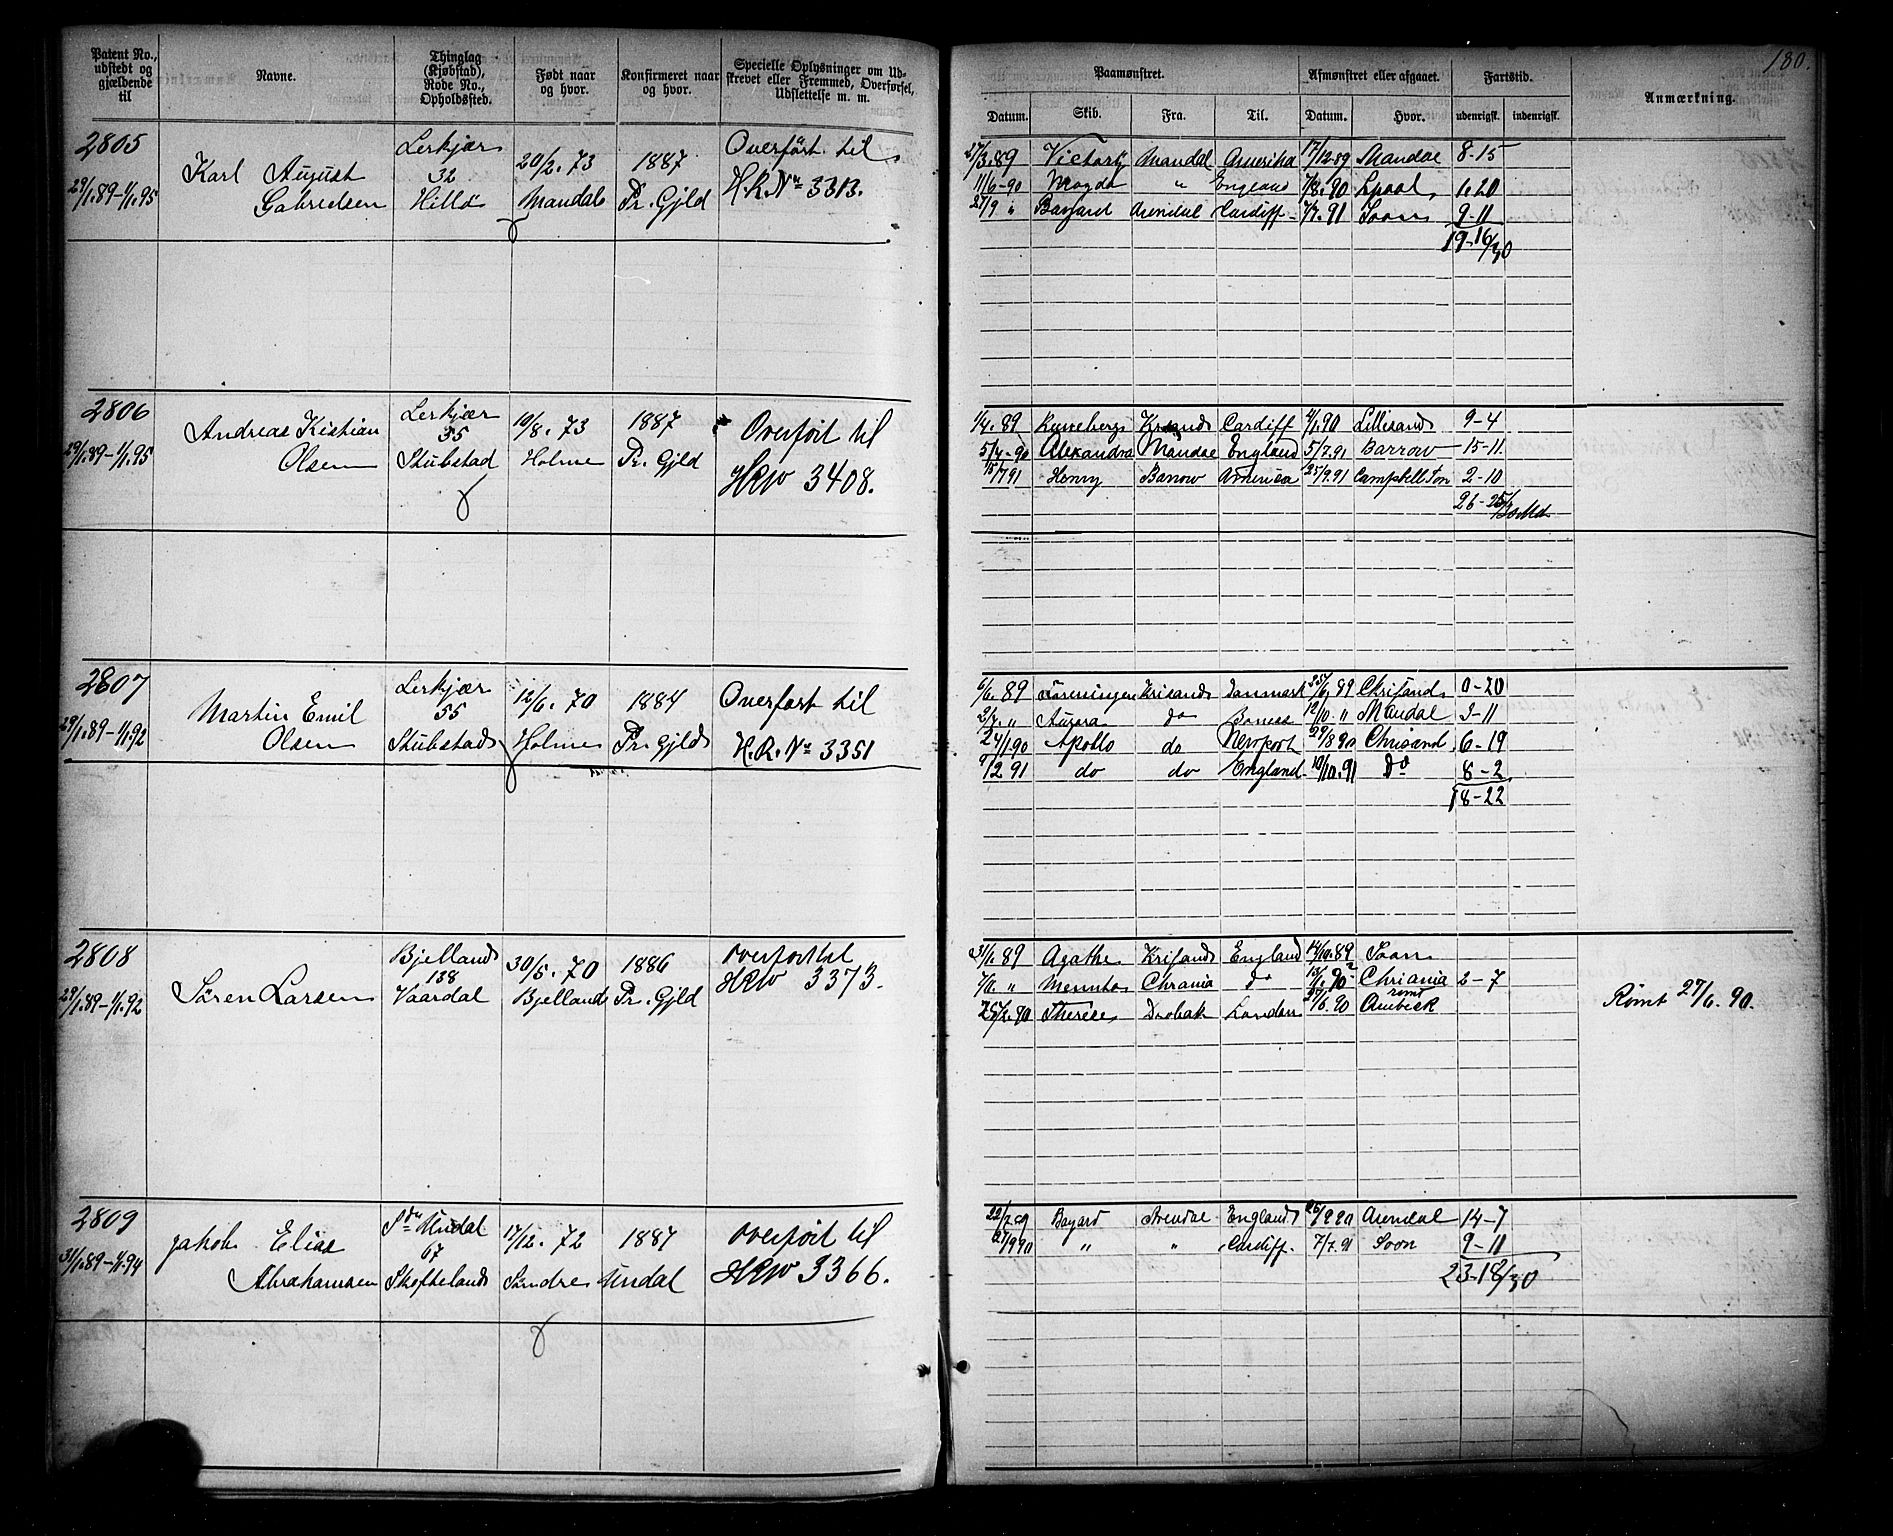 180.
Patent No., udstedt og gjældende til
Navne.
Thinglag (Kjøbstad), Rode No., Opholdssted.
Født naar og hvor.
Konfirmeret naar og hvor.
Specielle Oplysninger om Udskrevet eller Fremmed, Overførsel, Udslettelse m. m.
Paamønstret.
Afmønstret eller afgaaet.
Fartstid.
Anmærkning.
Datum. Skib. Fra. Til. Datum. Hvor. udenrigsk. indenrigsk.
2805
29/1.89-1/1.95
Karl August
Gabrielsen
Lerkjær
32
Hillø
20/2.73
Mandal
1887
Pr. Gjld
Overført til
H.R.No 3313.
27/3.89 Victory Mandal Amerika 17/12.89 Mandal 8-15
11/6-90 Magda " England 7/8.90 1.20
27/9 " Bayard Arendal Cardiff 7/7.91 Soon 9-11
19-16/30
2806
29/1.89-1/1.95
Andreas Kistian
Olsen
Lerkjær
35
Stubstad
10/8.73
Holme
1887
Pr. Gjld
Overført til
HRNo 3408.
1/4.89 Krsands Cardiff 4/1.90 Lillisands 9-4
5/4-90 Alexandra Mandal England 5/7.91 Barrow 15-11
15/7 91 Henry Barrow America 25/9.91 Campbellton 2-10
26-25/30 Md
2807
29/1.89-1/1.92
Martin Emil
Olsen
Lerkjær
55
Stubstad
12/6.70
Holme
1884
Pr. Gjld
Overført til
H.R.No 3351
6/6.89 Foreningen Krisand Danmark 25/6.89 Chrisand 0-20
2/7. " Aurora do Boness 12/10. " Mandal 3-11
24/1 90 Apollo do Newport 29/8 90 Chrisand 6-19
9/2 91 do do England 10/10.91 Do 8-2
18-22
2808
29/1.89-1/1.92
Søren Larsen
Bjelland
138
Vaardal
30/5.70
Bjelland
1886
Pr. Gjld
Overført til
HRNo 3373.
31/1.89 Agathe Krisand England 14/10.89 Soon
Chrania Do Chriania 2-7
25/2.90 Therese Drøbak London 27/6.90 rømt
Rømt 27/6.90.
2809
31/1.89-1/1.94
Jakob Elias
Abrahamsen
Sdre Undal
67
Skofteland
17/12.72
Søndre Undal
1887
Overført til
HRNo 3366.
22/2.89 Bayard Arendal England Arendal 14-7
27/9 90 " " Cardiff. 7/7.91 Soon 9-11
23-18/30